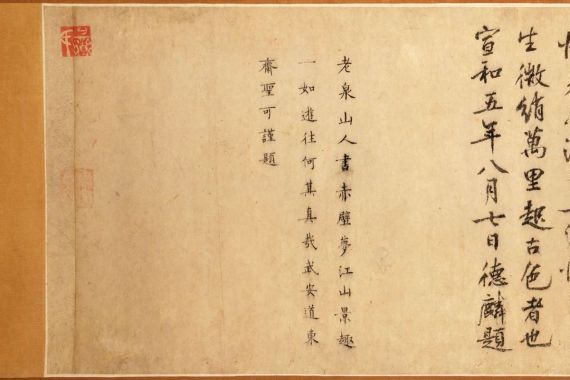 生微綃萬里趣古色者也
宣和五年八月七日德麟題
老泉山人書赤壁夢江山景趣
一如遊往何其真哉武安道東
齋聖可謹題